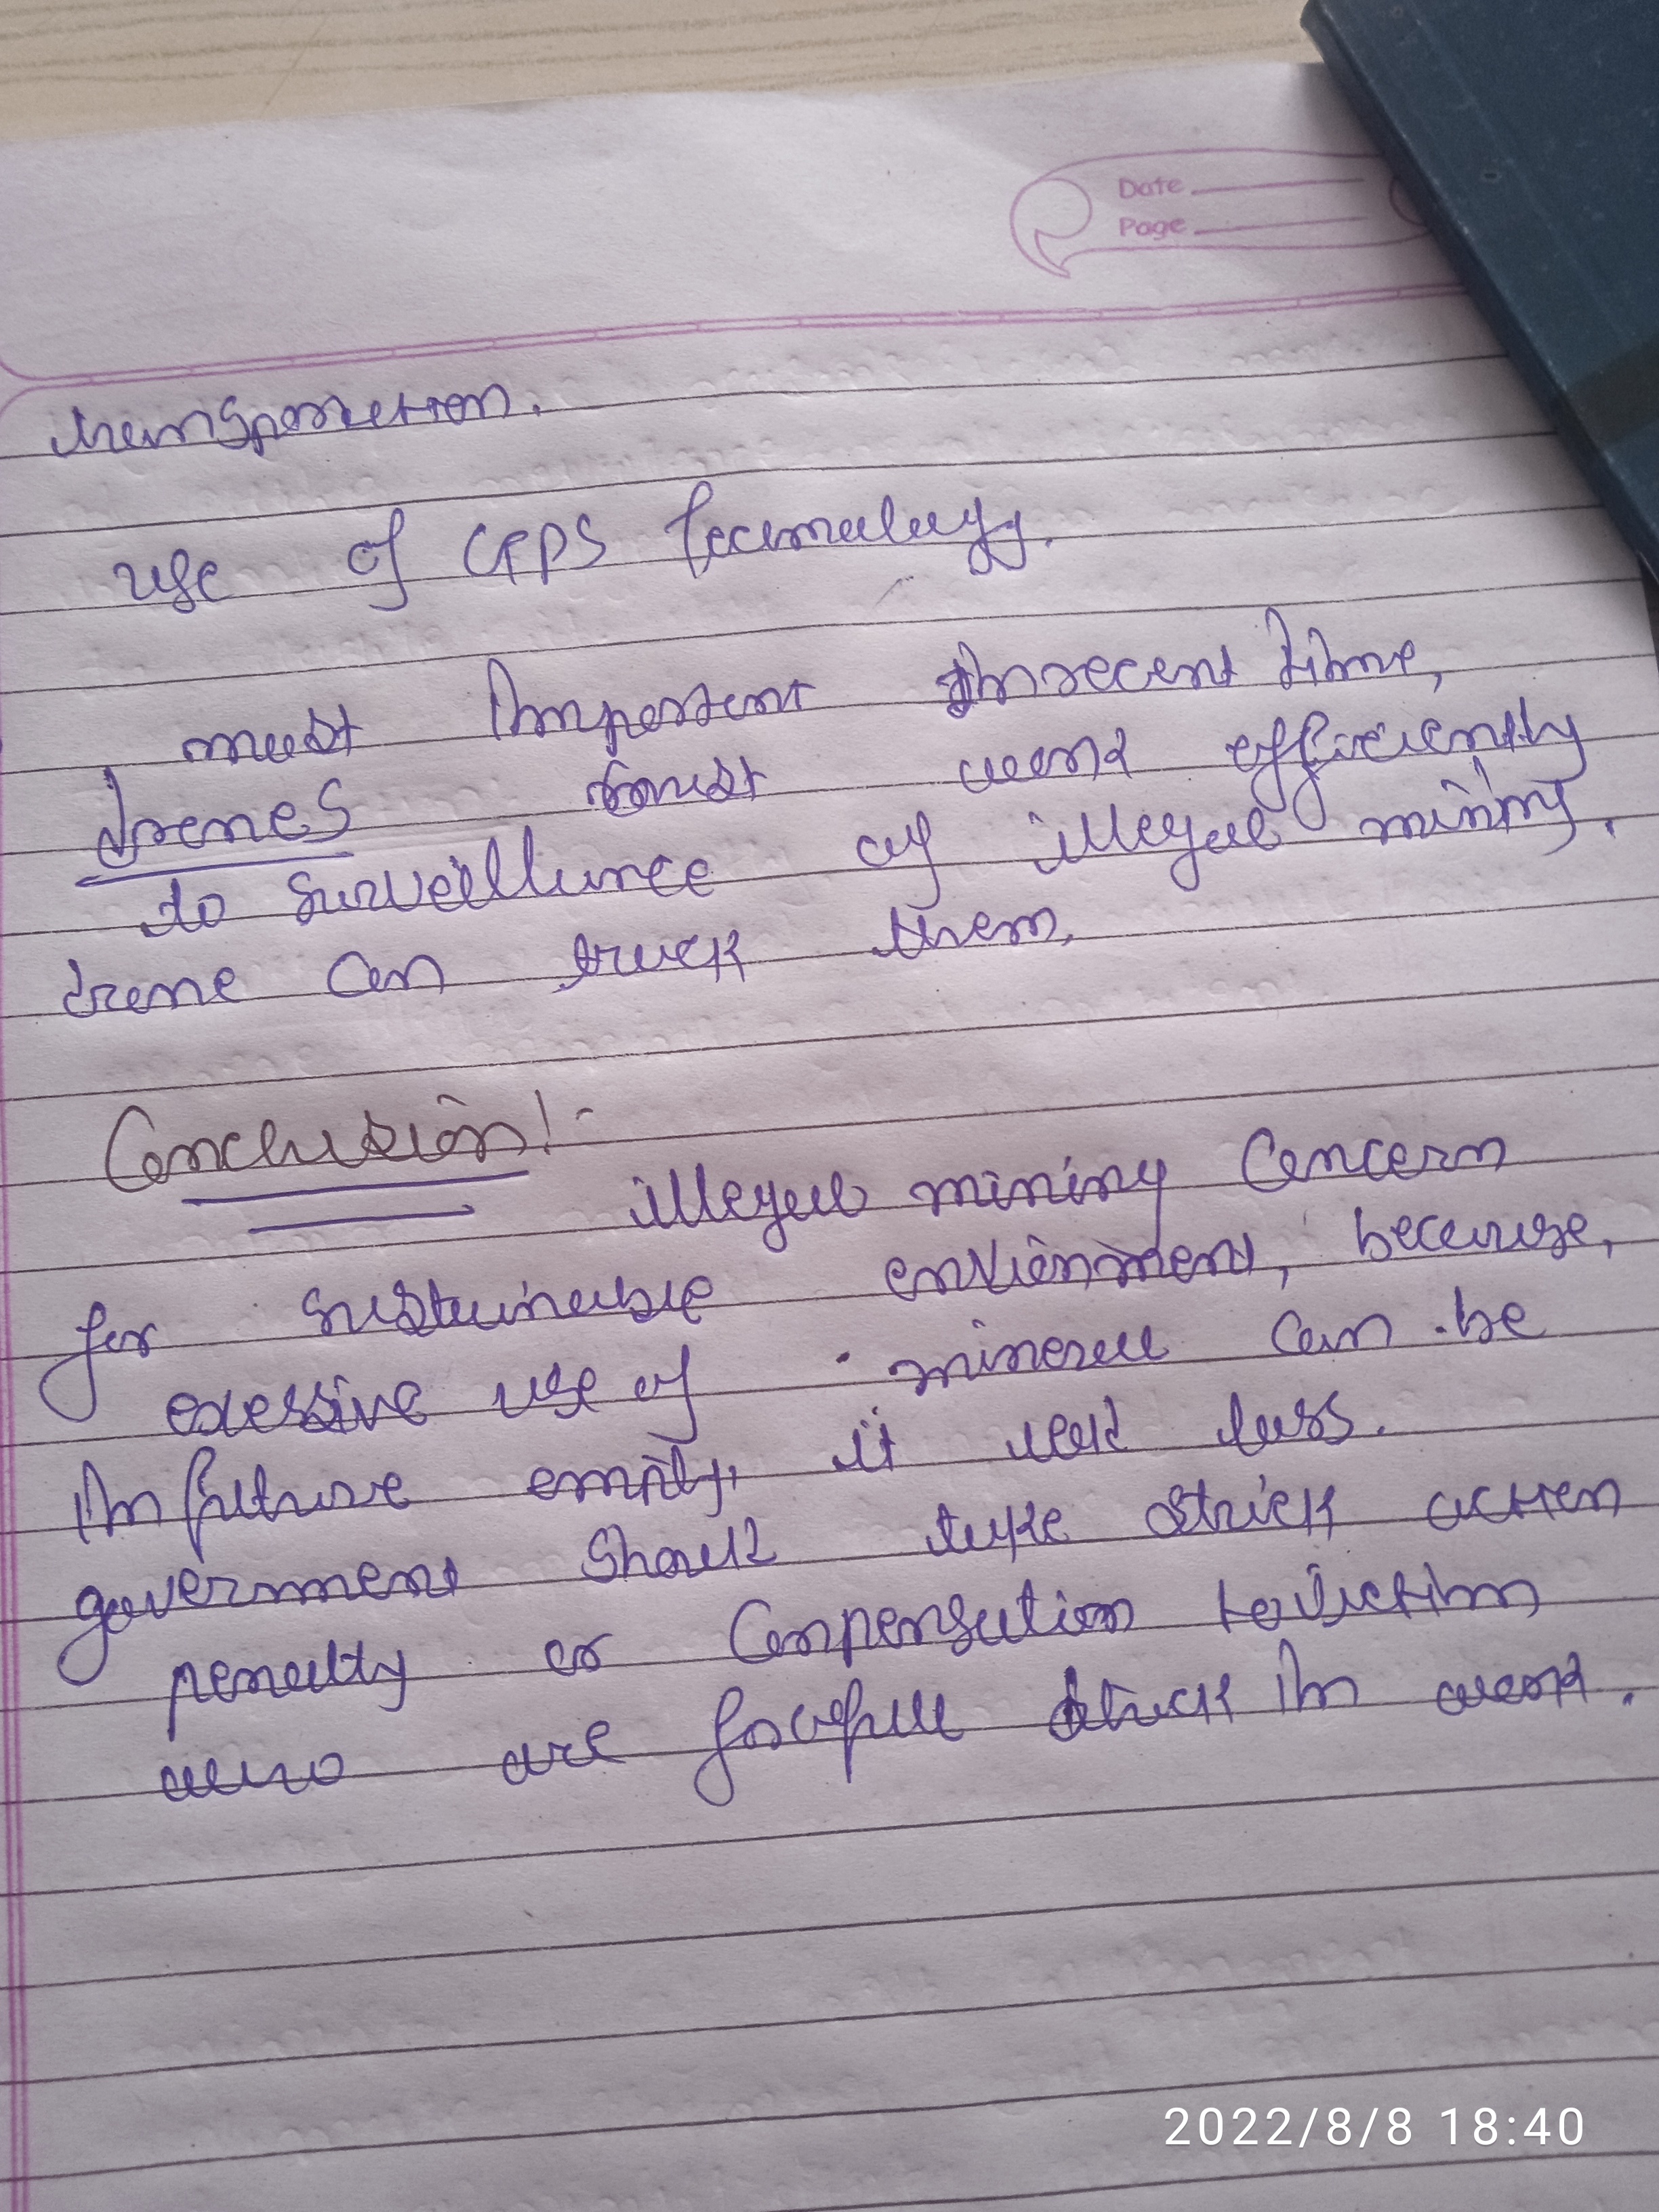 Date
Page
transportation.
use of GPS Tecnnology.
most Important In recent time,
drones must work efficiently
to surveillance of illegal mining.
drone can track them.
Conclusion!-
illegal mining concern
for sustainable envienment, because,
exessive use of mineral can be
In future empty, it less.
government should take strick action
penalty or Conpensation to victim
who are forcefull struck In work.
2022/8/8 18:40